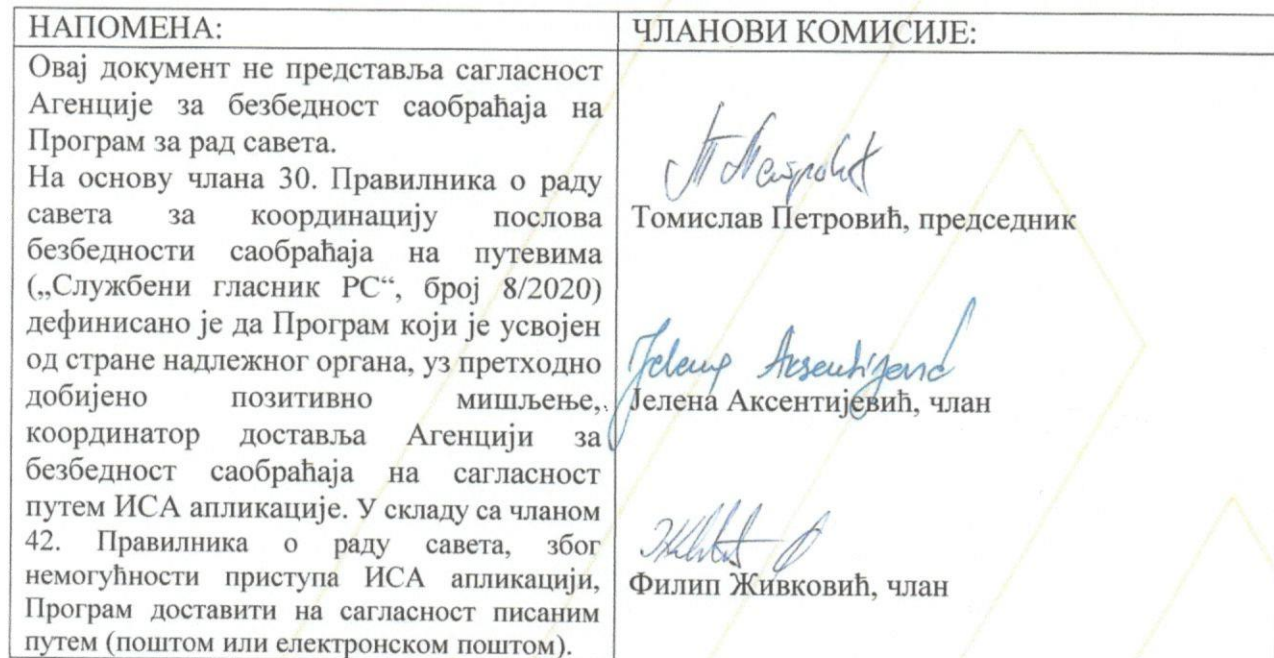 НАПОМЕНА:
Овај документ не представља сагласност
Агенције за безбедност саобраћаја на
Програм за рад савета.
На основу члана 30. Правилника о раду
савета за координацију послова
безбедности саобраћаја на путевима
(„Службени гласник РС“, број 8/2020)
дефинисано је да Програм који је усвојен
од стране надлежног органа, уз претходно
добијено позитивно мишљење,
координатор доставља Агенцији за
безбедност саобраћаја на сагласност
путем ИСА апликације. У складу са чланом
42. Правилника о раду савета, због
немогућности приступа ИСА апликацији,
Програм доставити на сагласност писаним
путем (поштом или електронском поштом).
ЧЛАНОВИ КОМИСИЈЕ:
Томислав Петровић, председник
Јелена Аксентијевић, члан
Филип Живковић, члан